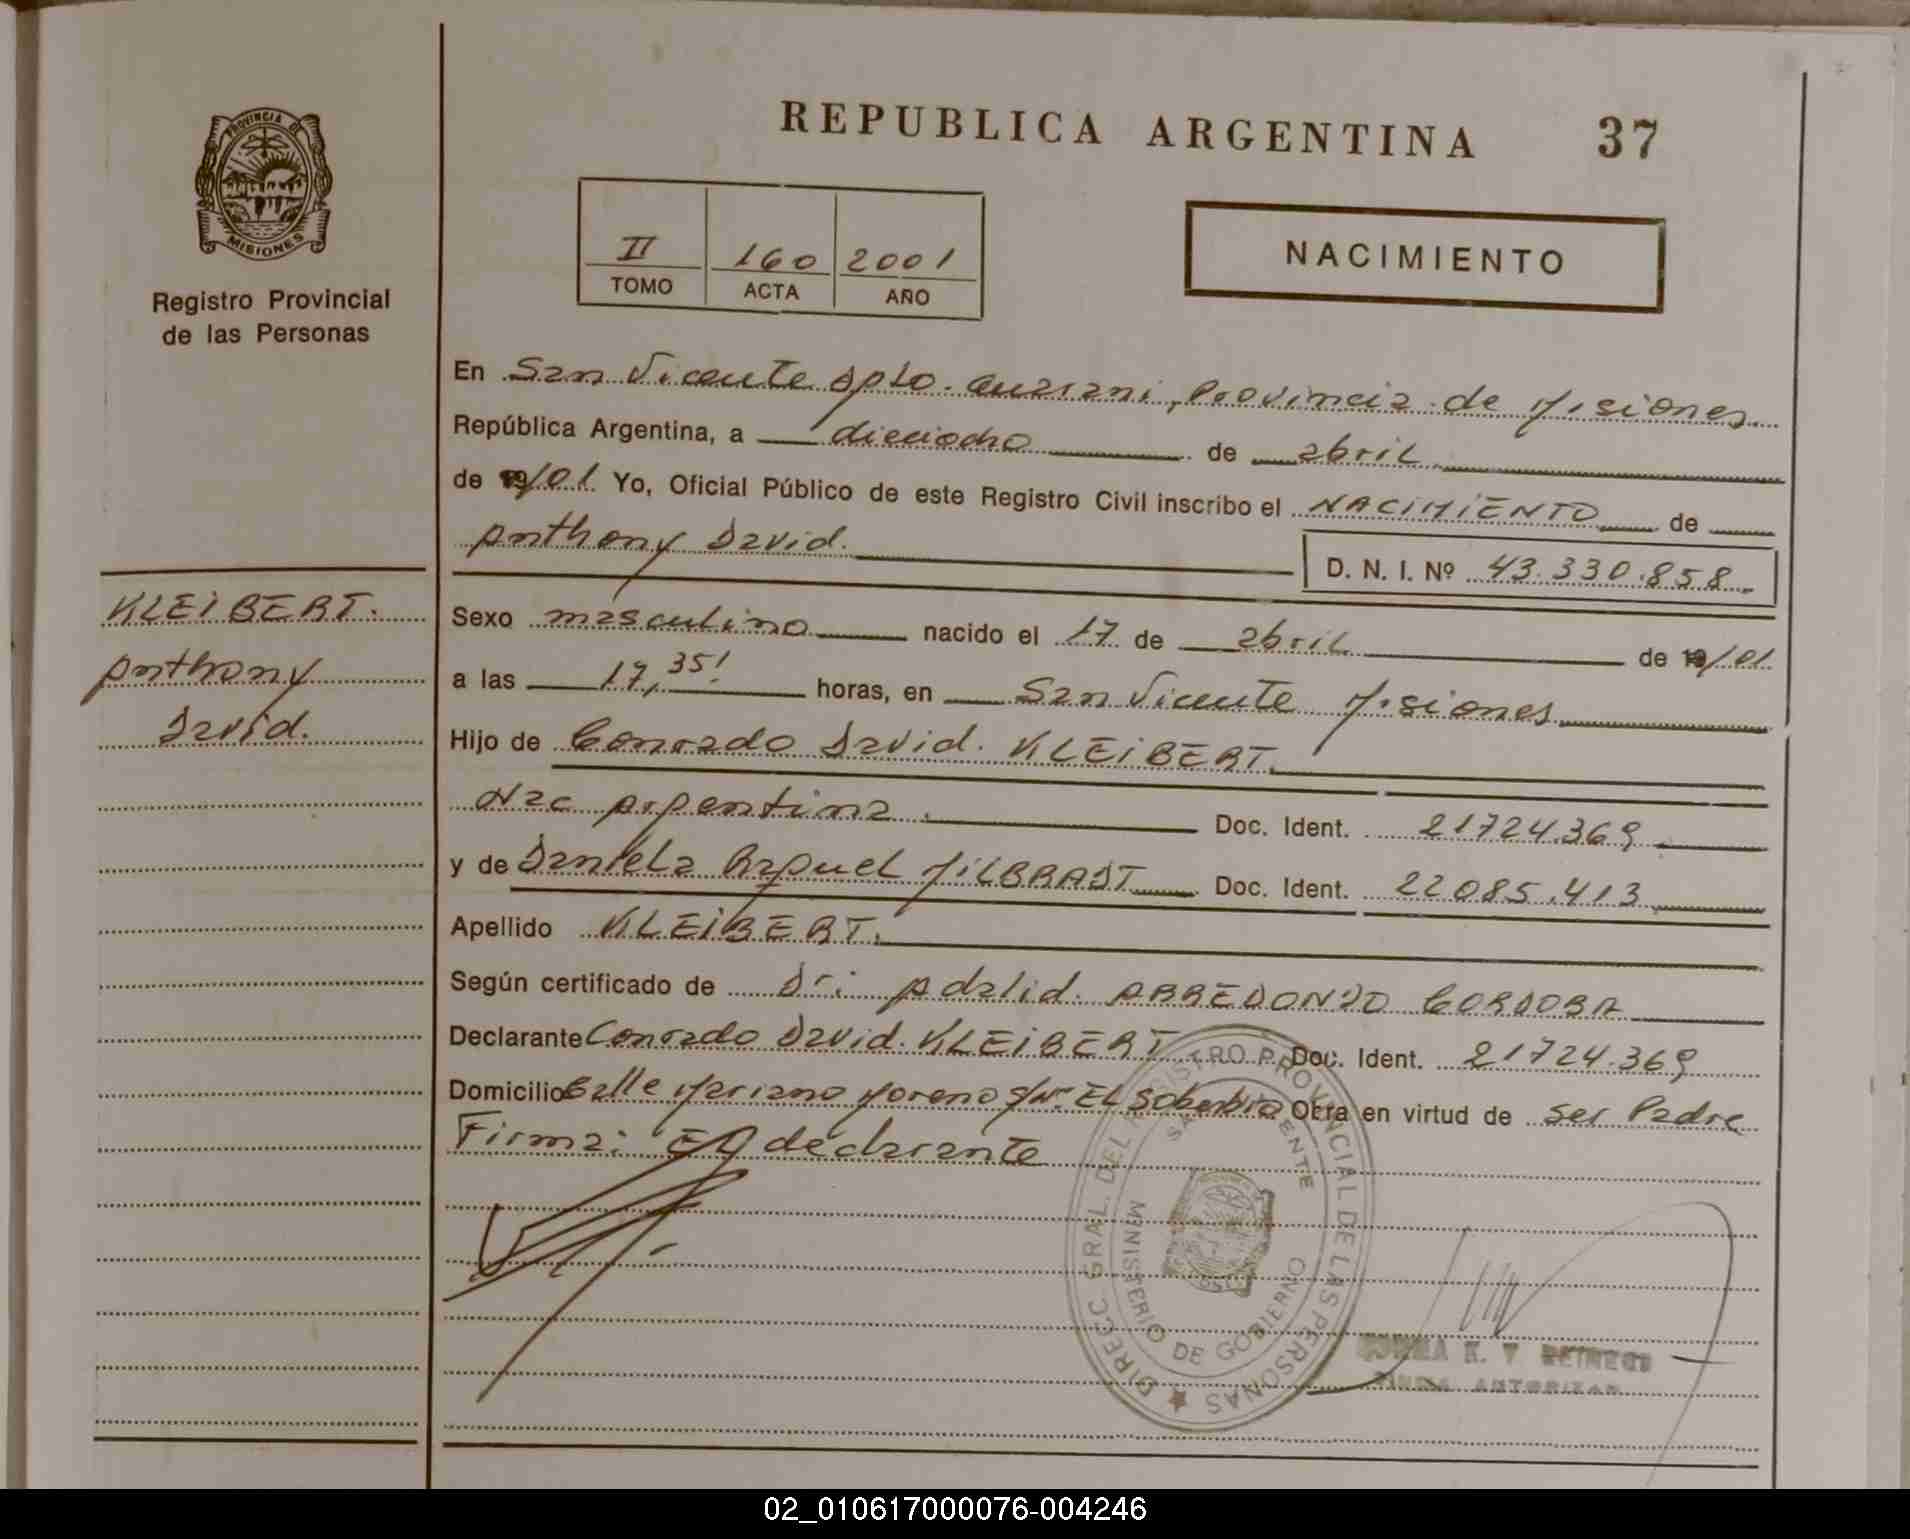 REPUBLICA ARGENTINA 37
PROVINCIA DE MISIONES
Registro Provincial
de las Personas
II 160 2001
TOMO ACTA AÑO
NACIMIENTO
En San Vicente Dpto. Guarani, Provincia de Misiones.
República Argentina, a dieciocho de abril
de 19/01 Yo, Oficial Público de este Registro Civil inscribo el NACIMIENTO de
Anthony David.
D. N. I. Nº 43.330.858
KLEIBERT.
Anthony
David.
Sexo masculino nacido el 17 de abril de 19/01
a las 17,35' horas, en San Vicente Misiones
Hijo de Conrado David. KLEIBERT.
Nac Argentina. Doc. Ident. 21724.369
y de Daniela Raquel MILBRADT Doc. Ident. 22085.413
Apellido KLEIBERT.
Según certificado de Dr: Adalid. ARREDONDO CORDOBA
Declarante Conrado David. KLEIBERT Doc. Ident. 21724.369
Domicilio Calle Mariano Moreno S/Nº El Soberbio Obra en virtud de ser Padre
Firma: El declarante
DIREC. GRAL. DEL REGISTRO PROVINCIAL DE LAS PERSONAS
SAN VICENTE
MINISTERIO DE GOBIERNO
02_010617000076-004246